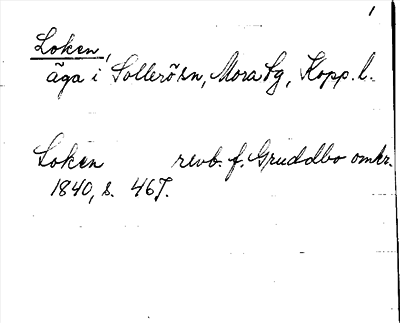 1
Loken,
äga i Sollerön, Mora sg, Kopp. l.
Loken revb. f. Gruddbo omkr.
1840, s. 467.